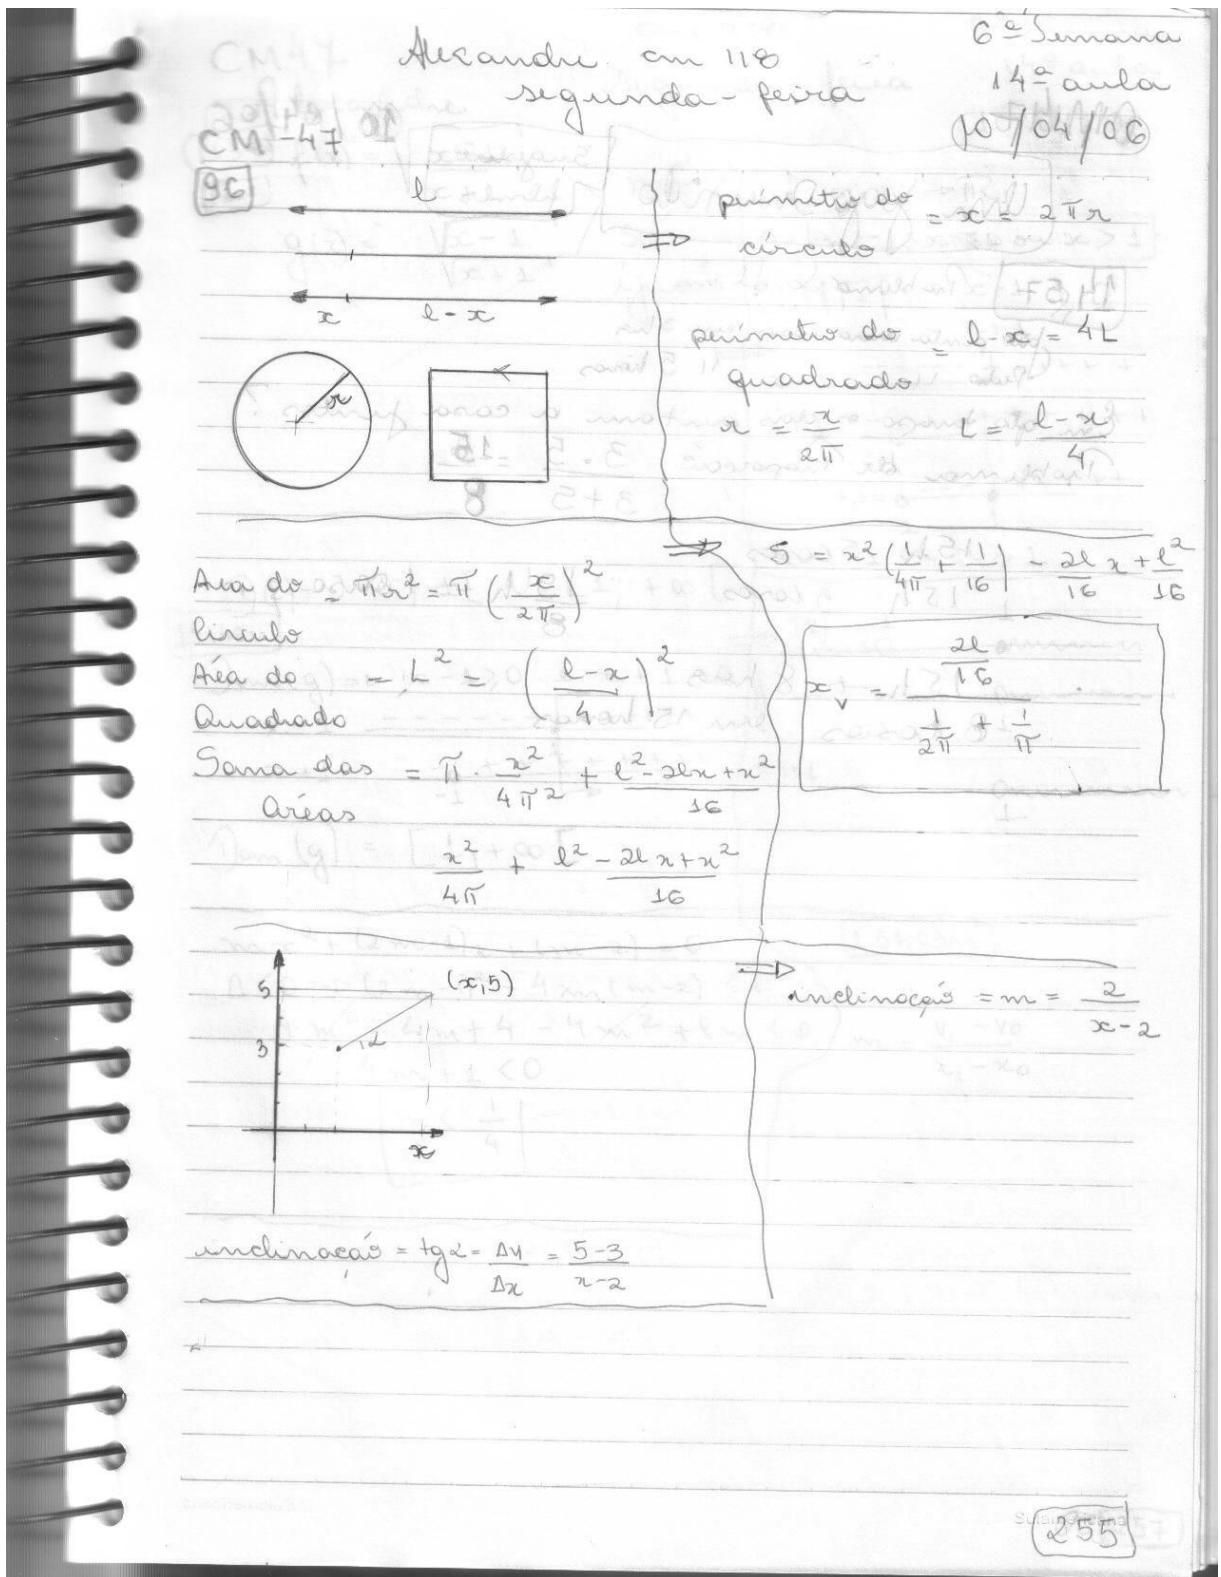 6ª Semana
Alexandre cm 118
14ª aula
segunda-feira
10/04/06
CM-47
96
l
x l-x
r
perímetro do círculo = x = 2πr
perímetro do quadrado = l-x = 4L
r = x/2π L = l-x/4
Área do Círculo = πr² = π (x/2π)²
Área do Quadrado = L² = (l-x/4)²
Soma das Áreas = π · x²/4π² + l²-2lx+x²/16
x²/4π + l²-2lx+x²/16
S = x²(1/4π + 1/16) - 2l/16 x + l²/16
x_v = (2l/16)/(1/2π + 1/π)
5
(x,5)
3
α
x
inclinação = tg α = Δy/Δx = 5-3/x-2
inclinação = m = 2/x-2
255